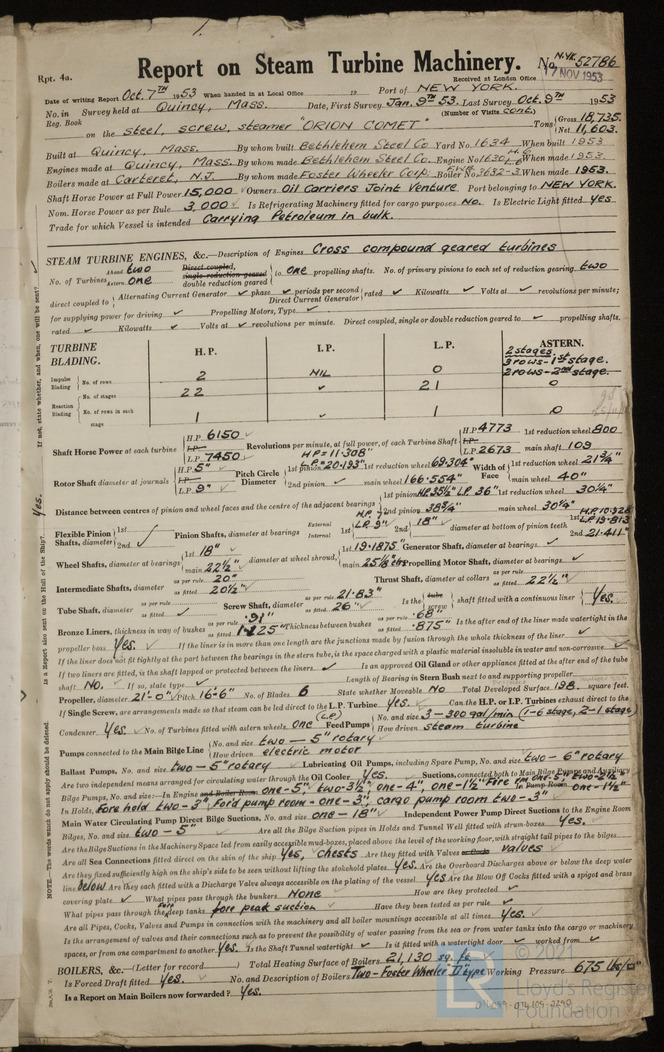 1.
Rpt. 4a.
Report on Steam Turbine Machinery. No. N.YK. 52786
Received at London Office 17 NOV 1953
Date of writing Report Oct. 7TH 1953 When handed in at Local Office 19 Port of NEW YORK.
No. in Reg. Book Survey held at Quincy, Mass. Date, First Survey Jan. 9TH 53. Last Survey Oct. 9TH 1953
(Number of Visits Cont.)
on the steel, screw, steamer "ORION COMET" Tons Gross 18,735. Net 11,603.
Built at Quincy, Mass. By whom built Bethlehem Steel Co Yard No. 1634 When built 1953
Engines made at Quincy, Mass. By whom made Bethlehem Steel Co. Engine No. When made 1953.
Boilers made at Carteret, N.J. By whom made Foster Wheeler Corp. Boiler No. 3632-3 When made 1953.
Shaft Horse Power at Full Power 15,000 Owners Oil Carriers Joint Venture Port belonging to NEW YORK.
Nom. Horse Power as per Rule 3,000 Is Refrigerating Machinery fitted for cargo purposes No. Is Electric Light fitted Yes
Trade for which Vessel is intended Carrying Petroleum in bulk.
STEAM TURBINE ENGINES, &c.—Description of Engines Cross compound geared turbines
No. of Turbines Ahead two Astern one Direct coupled, single reduction geared double reduction geared to one propelling shafts. No. of primary pinions to each set of reduction gearing two
direct coupled to Alternating Current Generator ✓ phase ✓ periods per second Direct Current Generator rated ✓ Kilowatts ✓ Volts at ✓ revolutions per minute;
for supplying power for driving ✓ Propelling Motors, Type ✓
rated ✓ Kilowatts ✓ Volts at ✓ revolutions per minute. Direct coupled, single or double reduction geared to ✓ propelling shafts.
TURBINE BLADING. H. P. I. P. L. P. ASTERN.
2 stages. 3 rows-1st stage. 2 rows-2nd stage.
Impulse Blading No. of rows 2 NIL 0
Reaction Blading No. of stages 22 ✓ 21 0
No. of rows in each stage 1 ✓ 1 0
Shaft Horse Power at each turbine H.P. 6150 I.P. L.P. 7450 Revolutions per minute, at full power, of each Turbine Shaft H.P. 4773 I.P. L.P. 2673 1st reduction wheel 800 main shaft 109
Rotor Shaft diameter at journals H.P. 5" I.P. L.P. 9" Pitch Circle Diameter HP=11·308" 1st pinion LP=20·193" 1st reduction wheel 69·304" 2nd pinion ✓ main wheel 166·554" Width of Face 1st reduction wheel 21¾" main wheel 40"
Distance between centres of pinion and wheel faces and the centre of the adjacent bearings 1st pinion HP. 35½" LP. 36" 1st reduction wheel 30¼" 2nd pinion 38¾" main wheel 30¼"
Flexible Pinion Shafts, diameter 1st 2nd ✓ Pinion Shafts, diameter at bearings External Internal 1st L.P. 9" 2nd 18" diameter at bottom of pinion teeth 1st H.P. 10·928 L.P. 19·813 2nd 21·411"
Wheel Shafts, diameter at bearings 1st 18" main 22½" diameter at wheel shroud, 1st 19·1875" main Generator Shaft, diameter at bearings ✓ Propelling Motor Shaft, diameter at bearings ✓
Intermediate Shafts, diameter as per rule 20" as fitted 20½" Thrust Shaft, diameter at collars as per rule as fitted 22½"
Tube Shaft, diameter as per rule as fitted ✓ Screw Shaft, diameter as per rule 21·83" as fitted 26" Is the tube screw shaft fitted with a continuous liner Yes.
Bronze Liners, thickness in way of bushes as per rule ·91" as fitted 1·125" Thickness between bushes as per rule ·68" as fitted ·875" Is the after end of the liner made watertight in the
propeller boss Yes. If the liner is in more than one length are the junctions made by fusion through the whole thickness of the liner ✓
If the liner does not fit tightly at the part between the bearings in the stern tube, is the space charged with a plastic material insoluble in water and non-corrosive ✓
If two liners are fitted, is the shaft lapped or protected between the liners ✓ Is an approved Oil Gland or other appliance fitted at the after end of the tube
shaft No. If so, state type ✓ Length of Bearing in Stern Bush next to and supporting propeller
Propeller, diameter 21'-0" Pitch 16'-6" No. of Blades 6 State whether Moveable No Total Developed Surface 198. square feet.
If Single Screw, are arrangements made so that steam can be led direct to the L.P. Turbine Yes. Can the H.P. or I.P. Turbines exhaust direct to the
Condenser Yes. No. of Turbines fitted with astern wheels One (L.P.) Feed Pumps No. and size 3-300 gal/min (1-6 stage, 2-1 stage) How driven steam turbine
Pumps connected to the Main Bilge Line No. and size two - 5" rotary How driven electric motor
Ballast Pumps, No. and size two - 5" rotary Lubricating Oil Pumps, including Spare Pump, No. and size two - 6" rotary
Are two independent means arranged for circulating water through the Oil Cooler Yes. Suctions, connected both to Main Bilge Pumps and Auxiliary
Bilge Pumps, No. and size:—In Engine and Boiler Room one-5", two-3½", one-4", one-1½"
In Holds, Fore hold two-3", For'd pump room-one-3", cargo pump room two-3"
Main Water Circulating Pump Direct Bilge Suctions, No. and size one - 18" Independent Power Pump Direct Suctions to the Engine Room
Bilges, No. and size two - 5" Are all the Bilge Suction pipes in Holds and Tunnel Well fitted with strum-boxes Yes.
Are the Bilge Suctions in the Machinery Space led from easily accessible mud-boxes, placed above the level of the working floor, with straight tail pipes to the bilges
Are all Sea Connections fitted direct on the skin of the ship Yes, chests Are they fitted with Valves or Cocks valves
Are they fixed sufficiently high on the ship's side to be seen without lifting the stokehold plates Yes. Are the Overboard Discharges above or below the deep water
line below Are they each fitted with a Discharge Valve always accessible on the plating of the vessel Yes Are the Blow Off Cocks fitted with a spigot and brass
covering plate ✓ What pipes pass through the bunkers None How are they protected ✓
What pipes pass through the deep tanks fore peak suction ✓ Have they been tested as per rule ✓
Are all Pipes, Cocks, Valves and Pumps in connection with the machinery and all boiler mountings accessible at all times. Yes.
Is the arrangement of valves and their connections such as to prevent the possibility of water passing from the sea or from water tanks into the cargo or machinery
spaces, or from one compartment to another Yes. Is the Shaft Tunnel watertight ✓ Is it fitted with a watertight door ✓ worked from ✓
BOILERS, &c.—(Letter for record ) Total Heating Surface of Boilers 21,130 sq. ft.
Is Forced Draft fitted Yes. No. and Description of Boilers Two-Foster Wheeler "D" type Working Pressure 675 lbs/□"
Is a Report on Main Boilers now forwarded? Yes.
If not, state whether, and when, one will be sent?
Is a Report also sent on the Hull of the Ship? Yes.
NOTE.—The words which do not apply should be deleted.
© 2021
Lloyd's Register
Foundation